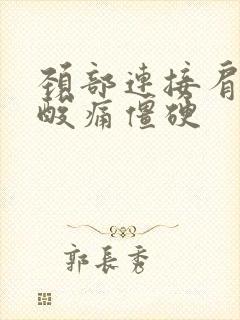 颈部連接肩
酸痛僵硬
郭長秀